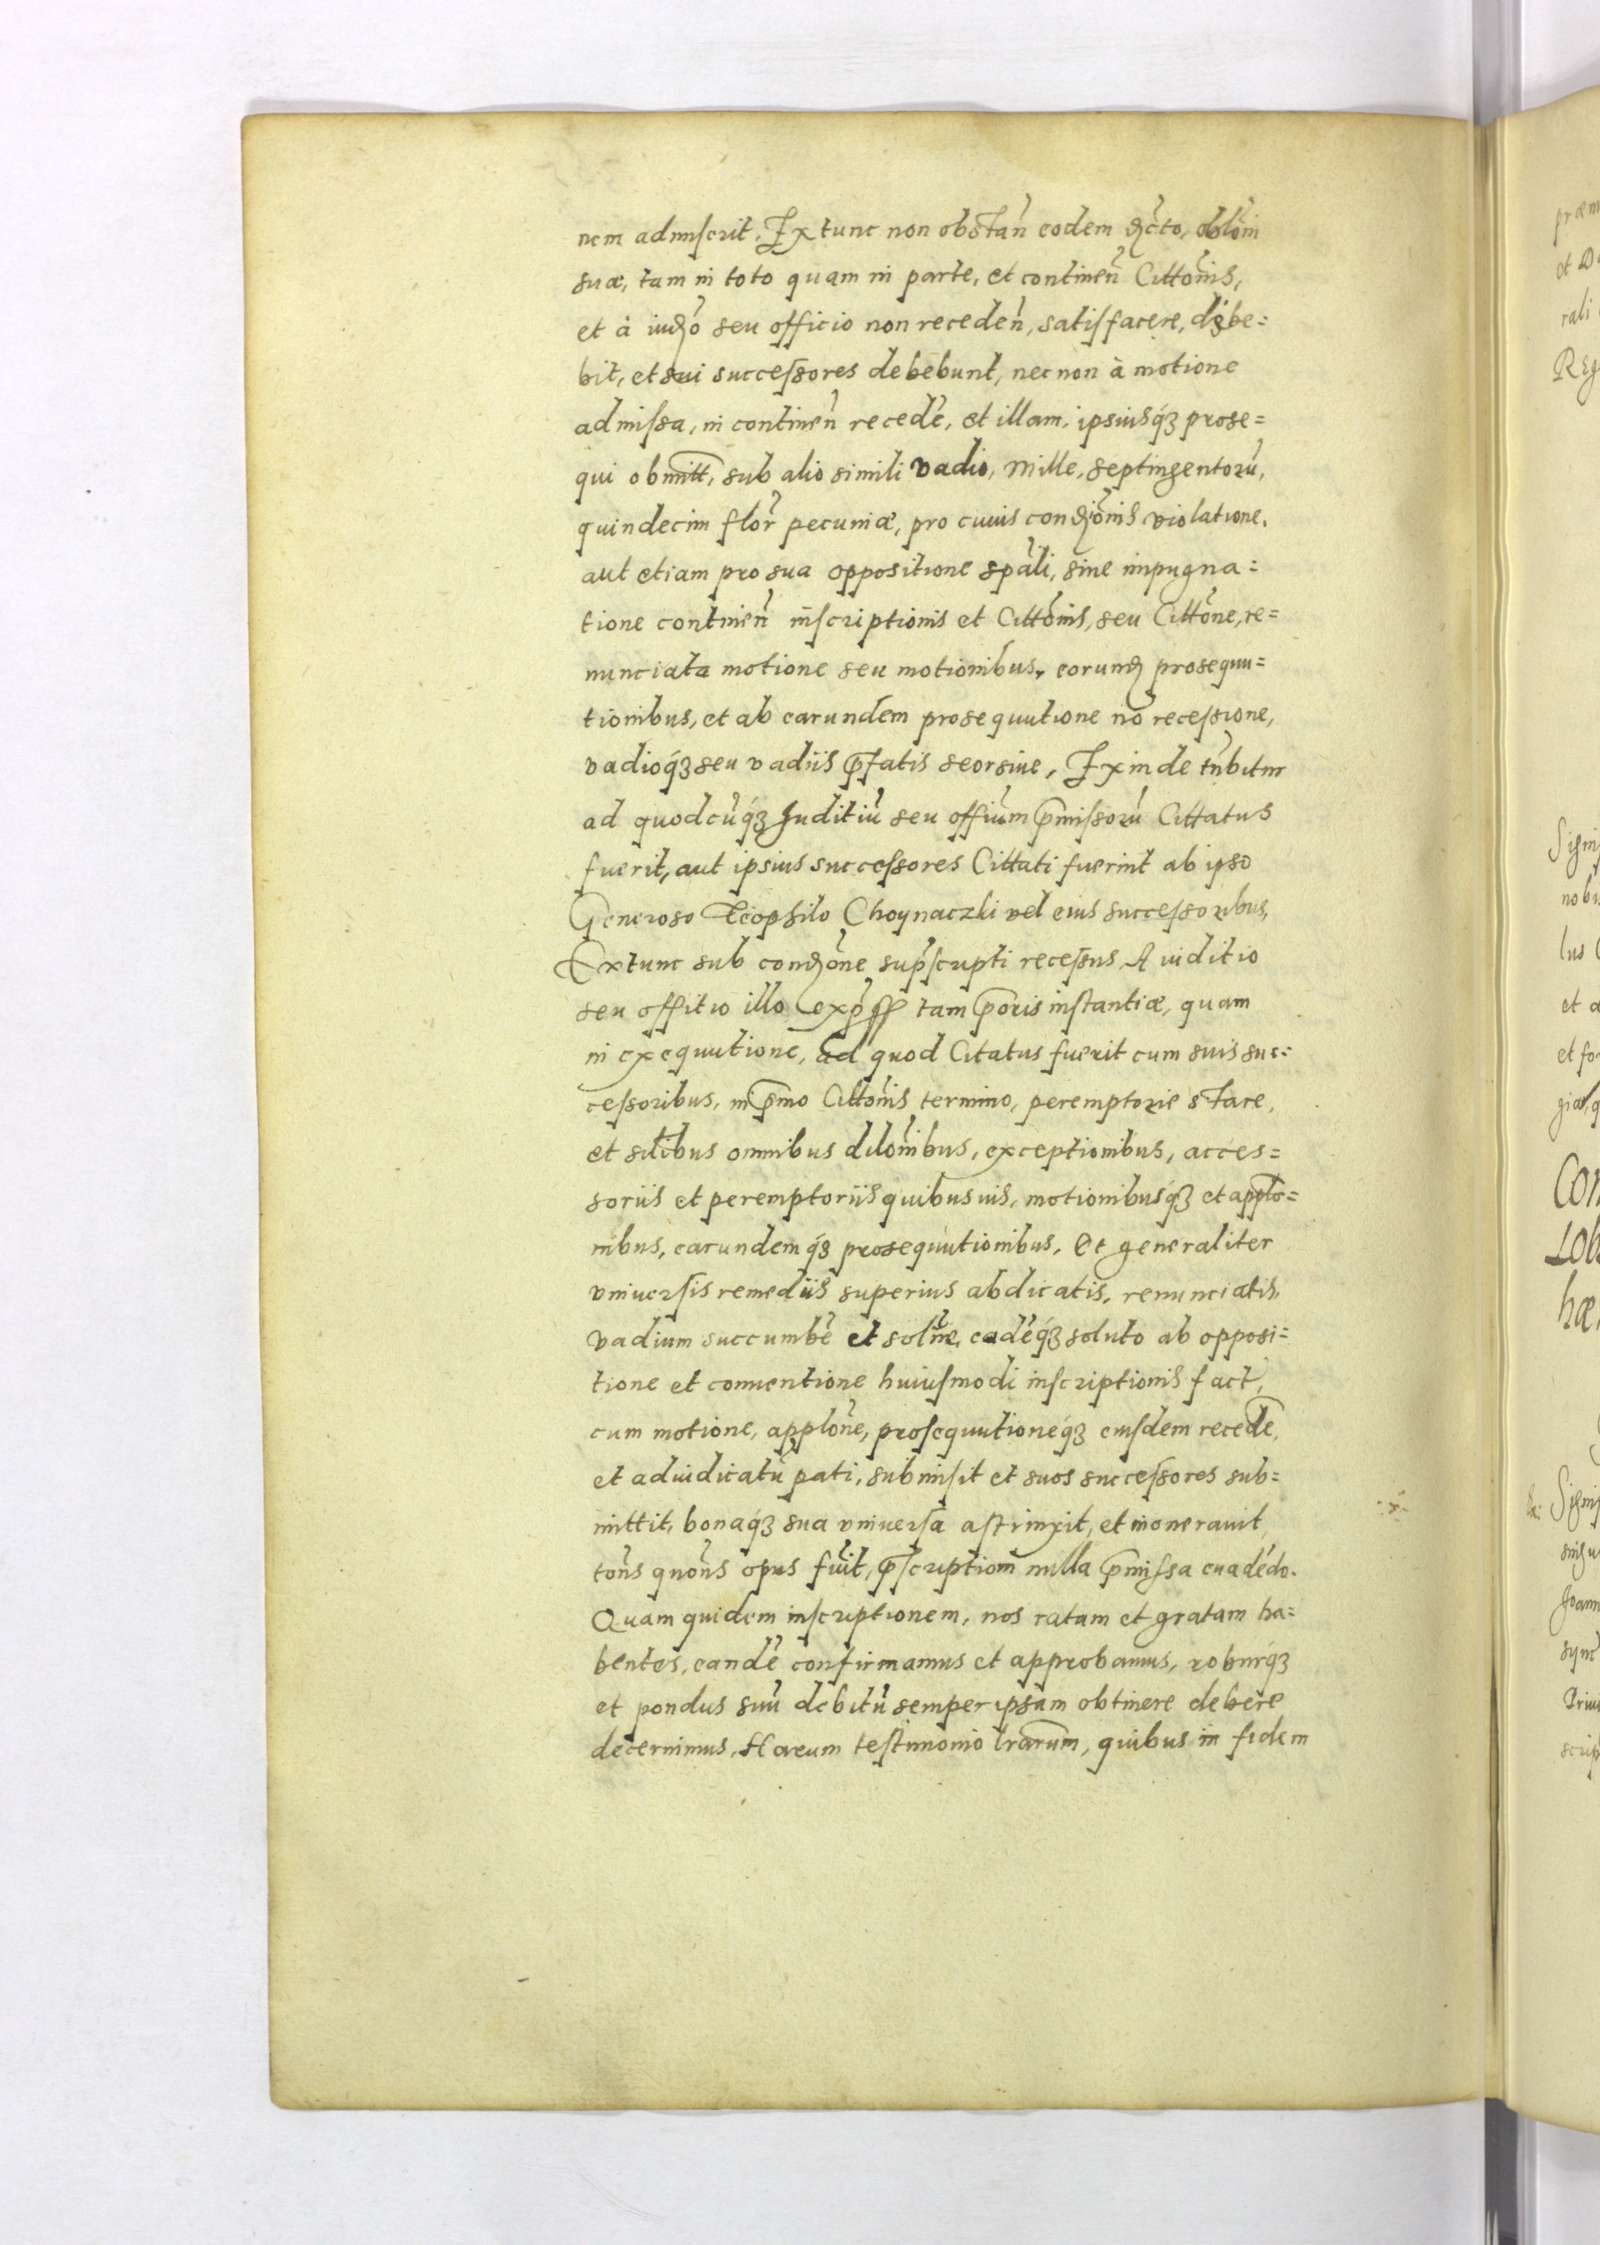 nem admiserit. Extunc non obstan̄ eodem dcto, obloni
suæ, tam in toto quam in parte, et continen̄ Cittonis,
et à iudo seu officio non receden̄, satisfacere, debe=
bit, et sui successores debebunt, nec non à motione
admissa, in continen̄ recedē, et illam, ipsiusq́ꝫ prose=
qui obmitt, sub alio simili vadio, Mille, septingentorū,
quindecim flor pecuniæ, pro cuius condionis violatione,
aut etiam pro sua oppositione spāli, sine impugna=
tione continen̄ inscriptionis et Cittonis, seu Cittōne, re=
nunciata motione seu motionibus, eorund prosequu=
tionibus, et ab earundem prosequutione nō recessione,
vadioq́ꝫ seu vadiis p̄fatis seorsiue, Exinde tn̄bitur
ad quodcūq́ꝫ Juditiū seu offiūm p̄missorū Cittatus
fuerit, aut ipsius successores Cittati fuerint ab ipso
Generoso Teophilo Choynaczki vel eius successoribus,
Extunc sub condone supscripti recessus A iuditio
seu offitio illo exp̄ss tam p̄oris instantiæ, quam
in exequutione, ad quod Citatus fuerit cum suis suc=
cessoribus, in p̄mo Cittonis termino, peremptorie stare,
et silibus omnibus dilonibus, exceptionibus, acces=
soriis et peremptoriis quibusuis, motionibusq́ꝫ et applo=
nibus, earundemq́ꝫ prosequutionibus, Et generaliter
vniuersis remediis superius abdicatis, renunciatis,
vadium succumbē et solue, eadēq́ꝫ soluto ab opposi=
tione et conuentione huiusmodi inscriptionis fact,
cum motione, applōne, prosequutioneq́ꝫ eiusdem recede,
et adiudicatū pati, submisit et suos successores sub=
mittit, bonaq́ꝫ sua vniuersa astrinxit, et inonerauit
tons quons opus fuit, p̄scription nulla p̄missa euadēdo.
Quam quidem inscriptionem, nos ratam et gratam ha=
bentes, eandē confirmamus et approbamus, roburq́ꝫ
et pondus suū debitū semper ipsam obtinere debere
decernimus, Harum testimonio lrarum, quibus in fidem